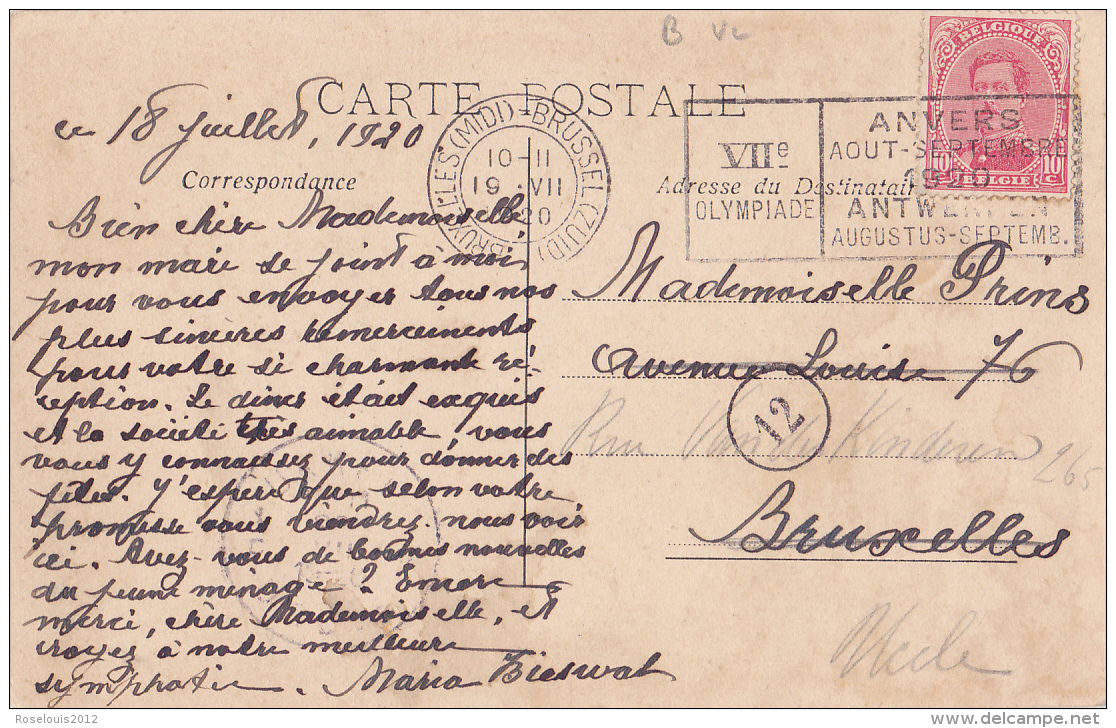 B VL
CARTE POSTALE
BELGIQUE
10 c. BELGIE 10 c.
BRUXELLES (MIDI) - BRUSSEL (ZUID)
10-11
19 VII
20
VIIe
OLYMPIADE
ANVERS
AOUT-SEPTEMBRE
1920
ANTWERPEN
AUGUSTUS-SEPTEMB.
ce 18 juillet, 1920
Correspondance
Adresse du Destinatai
Bien chère Mademoiselle
mon mari se joint à moi
pour vous envoyer tous nos
plus sincères remerciments
pour votre si charmante ré-
ception. Le diner était exquis
et la société très aimable, vous
vous y connaissez pour donner des
fêtes. J'espère que selon votre
promesse vous viendrez nous voir
ici. Avez-vous de bonnes nouvelles
du jeune ménage? Encore
merci, chère Mademoiselle, et
croyez à notre meilleure
sympathie. Maria Bieswal
Mademoiselle Prins
avenue Louise 76
12
Rue Van der Kinderen 265
Bruxelles
Uccle
Roselouis2012
www.delcampe.net